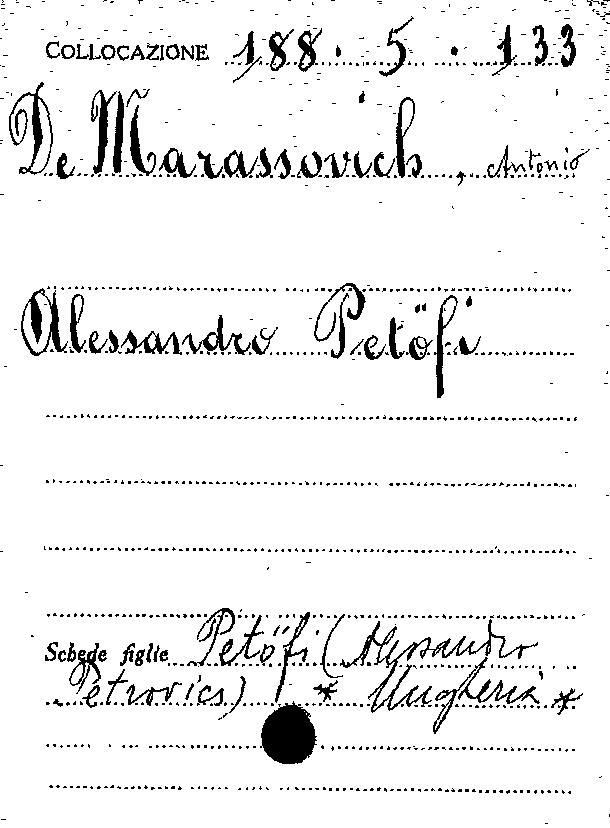 COLLOCAZIONE 188. 5. 133
De Marassovich, Antonio
Alessandro Petöfi
Schede figlie Petöfi (Alessandro
Petrovics) * Ungheria *